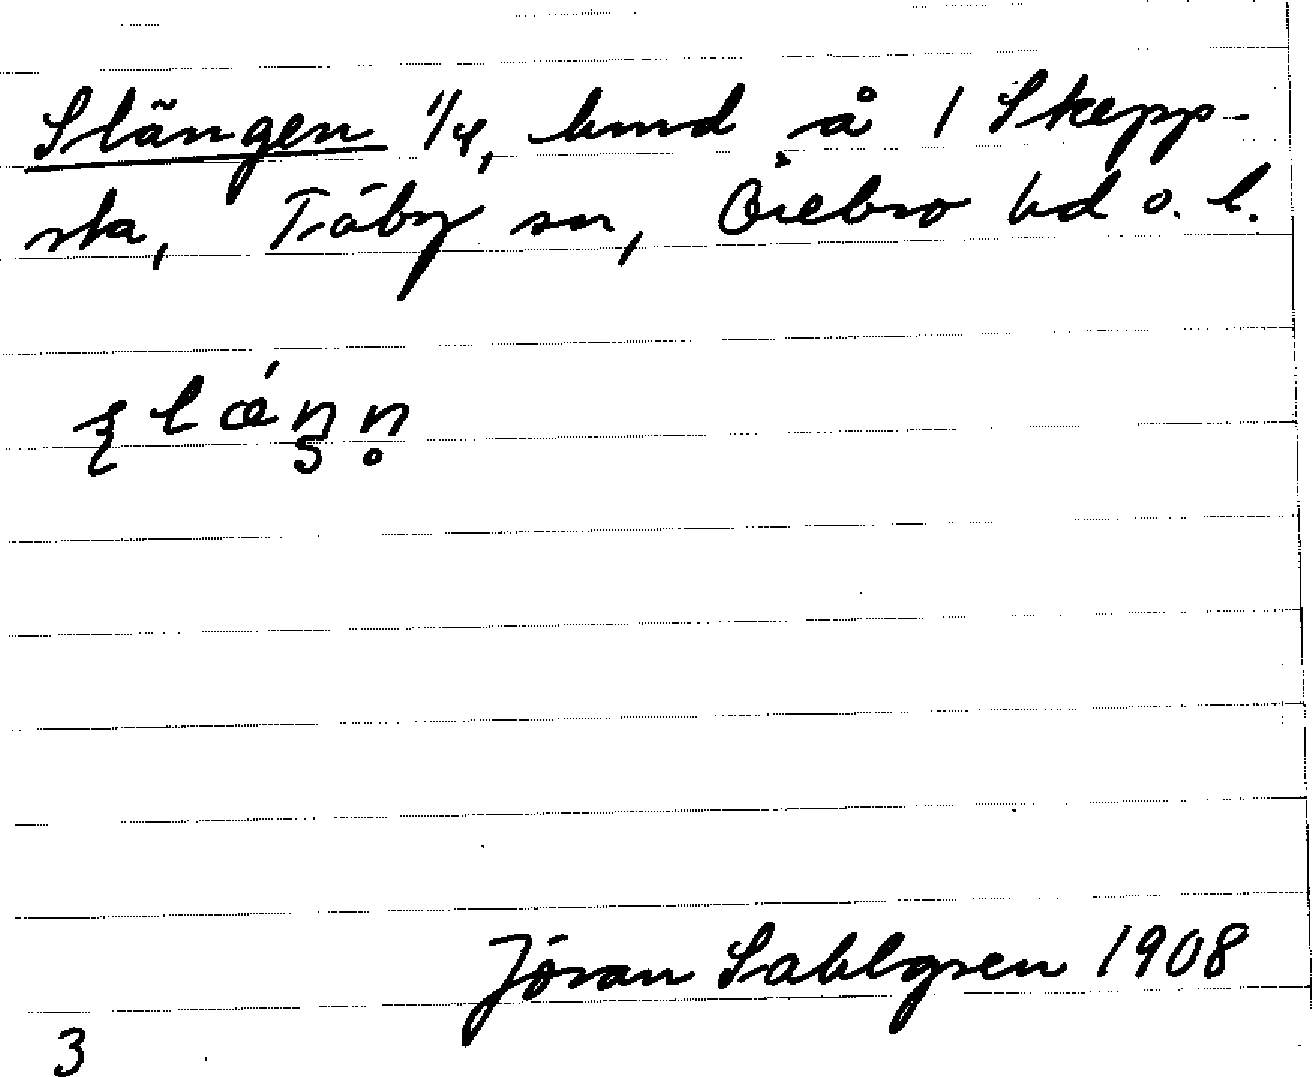 Slängen 1/4, hmd å 1 Skepp-
sta, Täby sn, Örebro hd o. l.
Jöran Sahlgren 1908
3